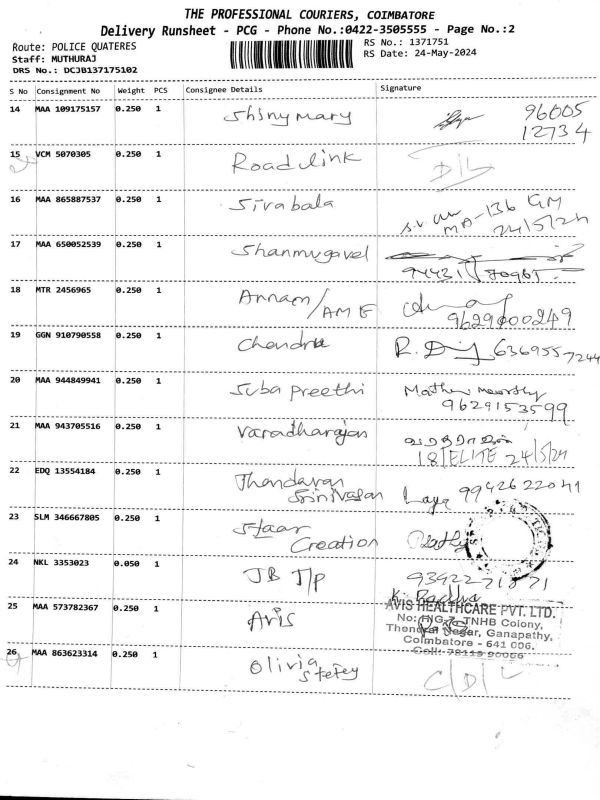 THE PROFESSIONAL COURIERS, COIMBATORE
Delivery Runsheet - PCG - Phone No.:0422-3505555 - Page No.:2
Route: POLICE QUATERES
Staff: MUTHURAJ
DRS No.: DCJB137175102
RS No.: 1371751
RS Date: 24-May-2024
S No Consignment No Weight PCS Consignee Details Signature
14 MAA 109175157 0.250 1 Shiny mary 96005
12734
15 VCM 5070305 0.250 1 Road link D/L
16 MAA 865887537 0.250 1 Sivabala
MA-136 GM
24/5/24
17 MAA 650052539 0.250 1 Shanmugavel
94431
18 MTR 2456965 0.250 1 Annam/AMF
9629000249
19 GGN 910790558 0.250 1 Chandra 6369557244
20 MAA 944849941 0.250 1 Suba preethi
9629153599
21 MAA 943705516 0.250 1 Varadharajan வரதராஜன்
18/ELITE 24/5/24
22 EDQ 13554184 0.250 1 Thandavan
Srinivasan 9942622041
23 SLM 346667805 0.250 1 Staar
Creation
24 NKL 3353023 0.050 1 JB T/P 9342271871
K. Radha
25 MAA 573782367 0.250 1 Avis
AVIS HEALTHCARE PVT. LTD.
No: HIG-7, TNHB Colony,
Thendral Nagar, Ganapathy,
Coimbatore - 641 006.
Cell: 78115 90066
26 MAA 863623314 0.250 1 Olivia
Stefey C/D/L